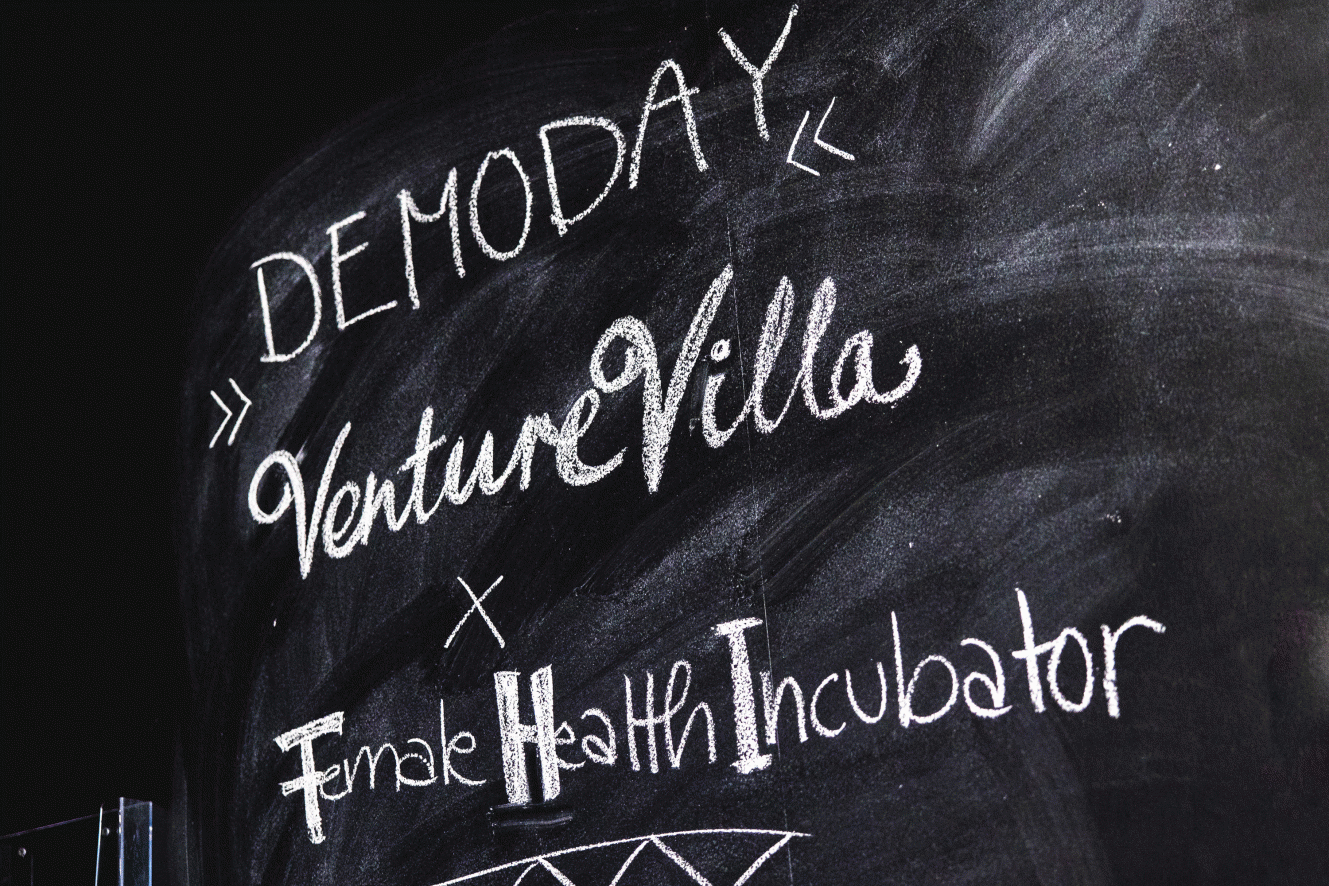 DEMODAY
» «
VentureVilla
X
Female Health Incubator